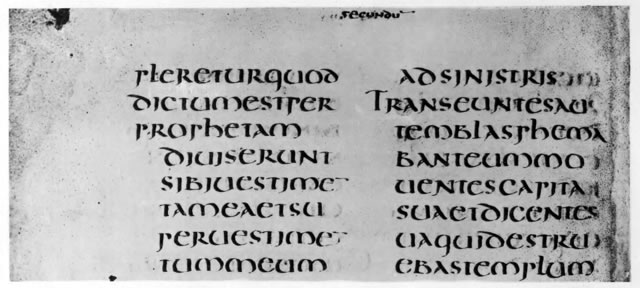 secundu
plereturquod
dictumestper
prophetam
diuiserunt
sibiuestime¯
tameaetsu
peruestime¯
tummeum
adsinistris
Transeuntesau
temblasphema
banteummo
uentescapita
suaetdicentes
uaquidestru
ebastemplum